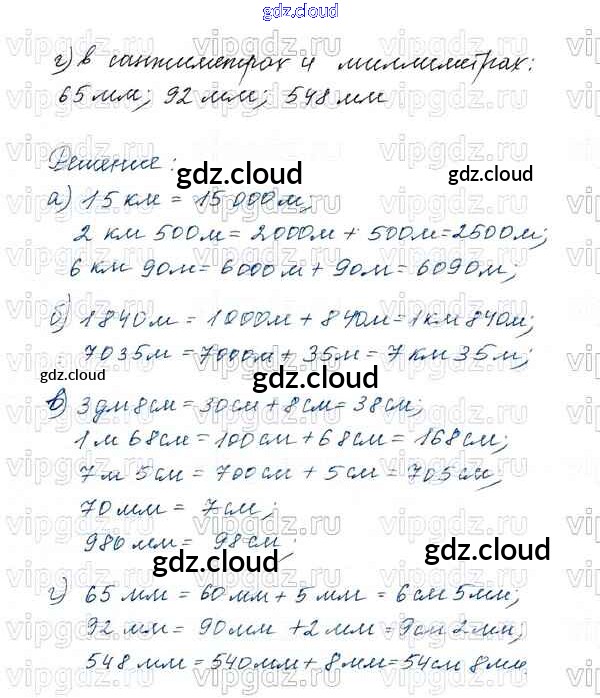 gdz.cloud
г) в сантиметрах и миллиметрах:
65 мм; 92 мм; 548 мм
Решение:
gdz.cloud
gdz.cloud
а) 15 км = 15 000 м;
2 км 500 м = 2000 м + 500 м = 2500 м;
6 км 90 м = 6000 м + 90 м = 6090 м;
б) 1840 м = 1000 м + 840 м = 1 км 840 м;
7035 м = 7000 м + 35 м = 7 км 35 м;
gdz.cloud
gdz.cloud
в) 3 дм 8 см = 30 см + 8 см = 38 см;
1 м 68 см = 100 см + 68 см = 168 см;
7 м 5 см = 700 см + 5 см = 705 см;
70 мм = 7 см;
980 мм = 98 см;
gdz.cloud
gdz.cloud
г) 65 мм = 60 мм + 5 мм = 6 см 5 мм;
92 мм = 90 мм + 2 мм = 9 см 2 мм;
548 мм = 540 мм + 8 мм = 54 см 8 мм.
vipgdz.ru